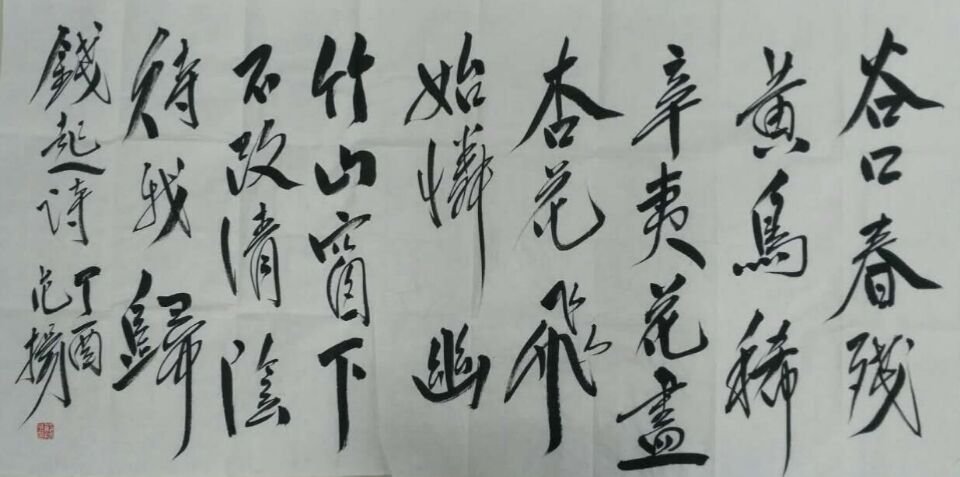 谷口春残
黄鳥稀
辛夷花盡
杏花飛
始憐幽
竹山窗下
不改清陰
待我歸
錢起诗
丁酉
范揚